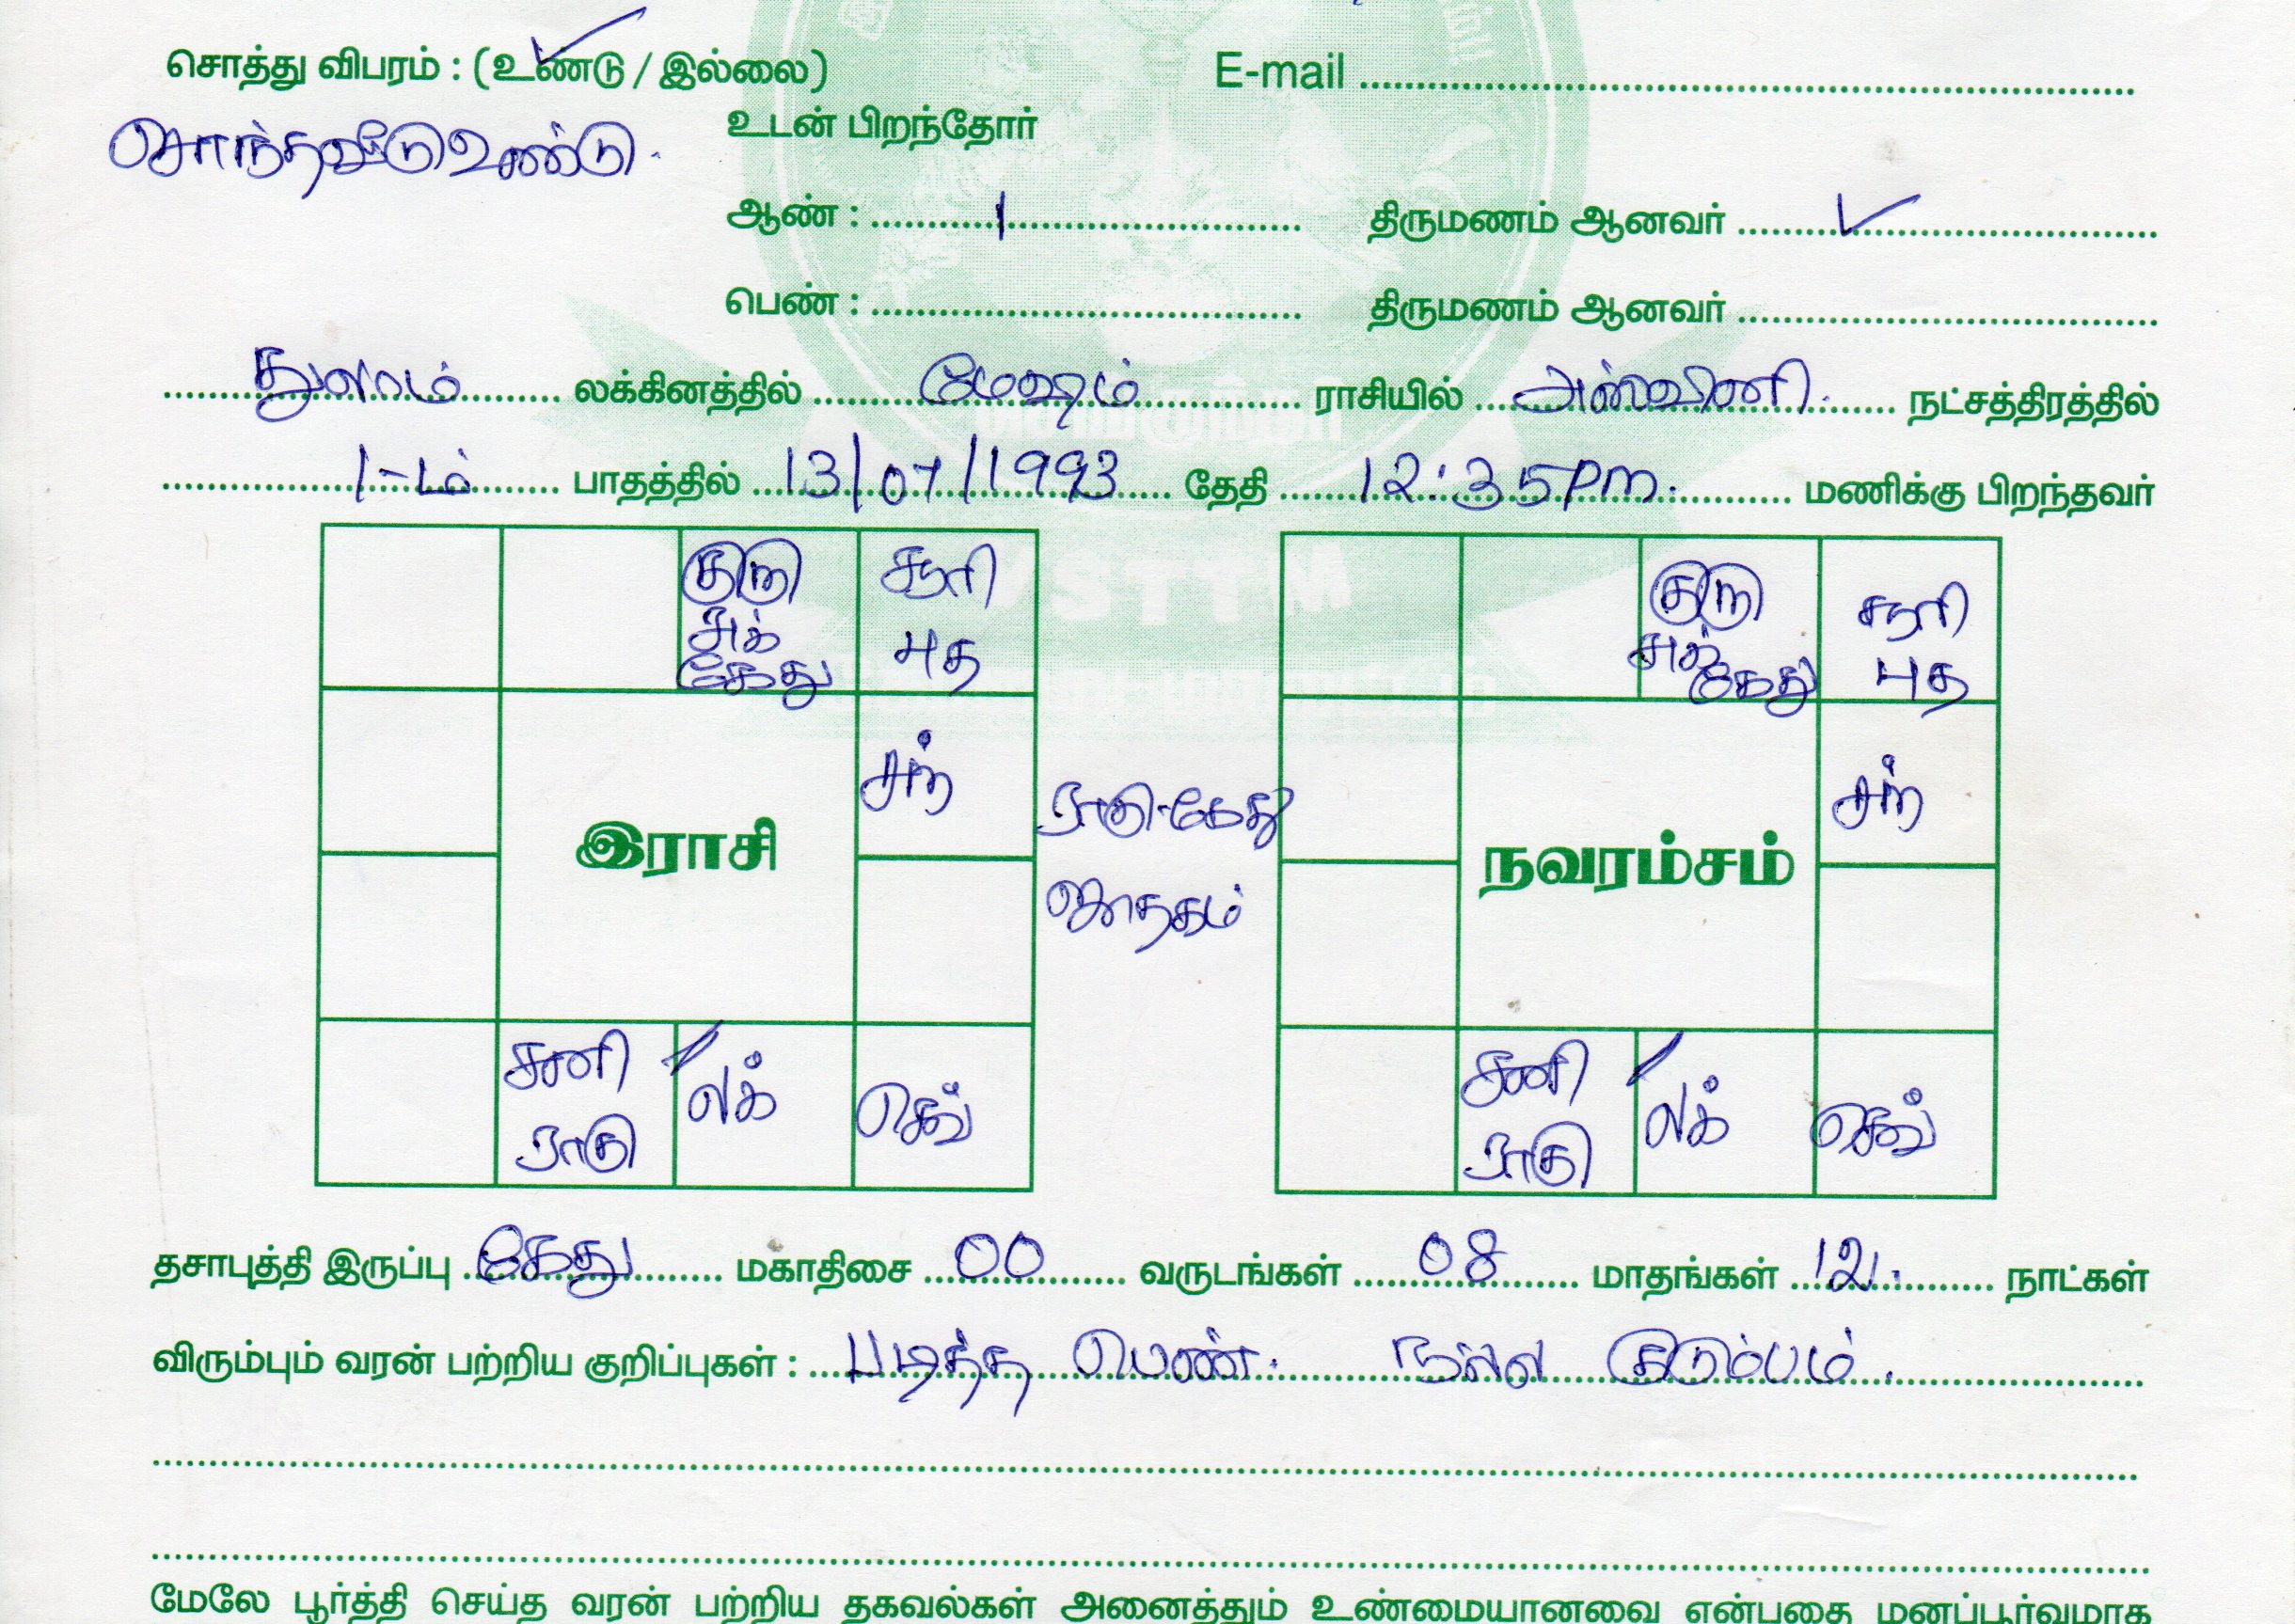 சொத்து விபரம் : (உண்டு / இல்லை) E-mail
சொந்தவீடு உண்டு.
உடன் பிறந்தோர்
ஆண் : 1 திருமணம் ஆனவர் ✓
பெண் : திருமணம் ஆனவர்
துலாம் லக்கினத்தில் மேஷம் ராசியில் அஸ்வினி நட்சத்திரத்தில்
1-ம் பாதத்தில் 13/07/1993 தேதி 12:35 PM. மணிக்கு பிறந்தவர்
VSTTM
குரு
சுக்
கேது
சூரி
புத
சந்
இராசி
சனி
ராகு
லக்
செவ்
ராகு-கேது
ஜாதகம்
குரு
சுக்
கேது
சூரி
புத
சந்
நவரம்சம்
சனி
ராகு
லக்
செவ்
தசாபுத்தி இருப்பு கேது மகாதிசை 00 வருடங்கள் 08 மாதங்கள் 12. நாட்கள்
விரும்பும் வரன் பற்றிய குறிப்புகள் : படித்த பெண். நல்ல குடும்பம்.
மேலே பூர்த்தி செய்த வரன் பற்றிய தகவல்கள் அனைத்தும் உண்மையானவை என்பதை மனப்பூர்வமாக